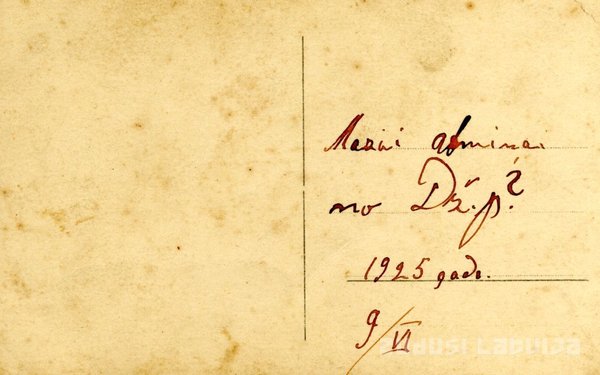 Mazai atmiņai
no Dž. p.?
1925 gada.
9/VI
zudusi Latvija